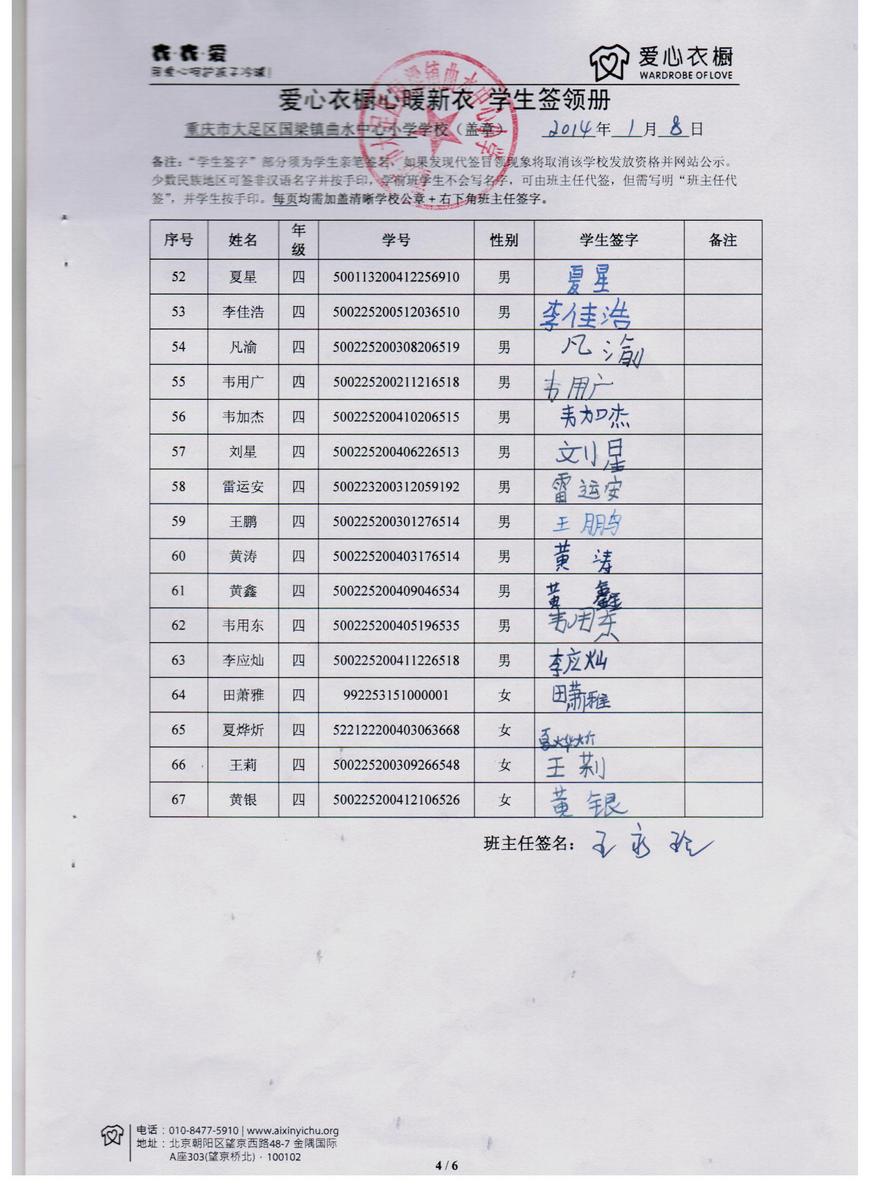 衣·衣·爱
用爱心呵护孩子冷暖!
爱心衣橱
WARDROBE OF LOVE
爱心衣橱心暖新衣 学生签领册
重庆市大足区国梁镇曲水中心小学学校（盖章） 2014年 1月 8日
备注：“学生签字”部分须为学生亲笔签名，如果发现代签冒领现象将取消该学校发放资格并网站公示。
少数民族地区可签非汉语名字并按手印，学前班学生不会写名字，可由班主任代签，但需写明“班主任代
签”，并学生按手印。每页均需加盖清晰学校公章+右下角班主任签字。
序号 姓名 年级 学号 性别 学生签字 备注
52 夏星 四 500113200412256910 男 夏星
53 李佳浩 四 500225200512036510 男 李佳浩
54 凡渝 四 500225200308206519 男 凡渝
55 韦用广 四 500225200211216518 男 韦用广
56 韦加杰 四 500225200410206515 男 韦加杰
57 刘星 四 500225200406226513 男 刘星
58 雷运安 四 500223200312059192 男 雷运安
59 王鹏 四 500225200301276514 男 王鹏
60 黄涛 四 500225200403176514 男 黄涛
61 黄鑫 四 500225200409046534 男 黄鑫
62 韦用东 四 500225200405196535 男 韦用东
63 李应灿 四 500225200411226518 男 李应灿
64 田萧雅 四 992253151000001 女 田萧雅
65 夏烨炘 四 522122200403063668 女 夏烨炘
66 王莉 四 500225200309266548 女 王莉
67 黄银 四 500225200412106526 女 黄银
班主任签名：王永玲
电话：010-8477-5910 | www.aixinyichu.org
地址：北京朝阳区望京西路48-7 金隅国际
A座303(望京桥北)·100102
4 / 6